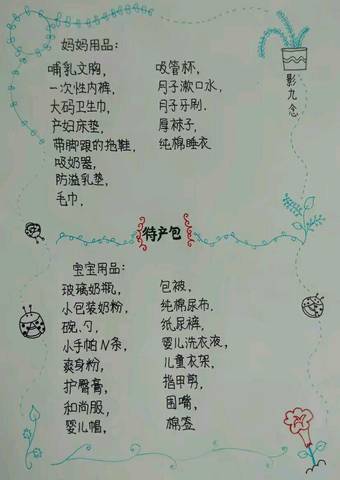 妈妈用品:
哺乳文胸,
一次性内裤,
大码卫生巾,
产妇床垫,
带脚跟的拖鞋,
吸奶器,
防溢乳垫,
毛巾.
吸管杯,
月子漱口水,
月子牙刷.
厚袜子,
纯棉睡衣
影九念
待产包
宝宝用品:
玻璃奶瓶,
小包装奶粉,
碗、勺,
小手帕N条,
爽身粉,
护臀膏,
和尚服,
婴儿帽,
包被,
纯棉尿布,
纸尿裤,
婴儿洗衣液,
儿童衣架,
指甲剪,
围嘴,
棉签